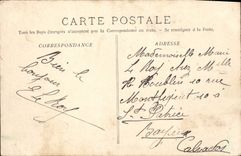 CARTE POSTALE
Tous les Pays étrangers n'acceptent pas la Correspondance au recto. — Se renseigner à la Poste.
CORRESPONDANCE
ADRESSE
Bien le
bonjour
Mademoiselle
Le Roy chez Melle
10 rue
Montfiquet 10 à
St Patrice
Bayeux
Calvados